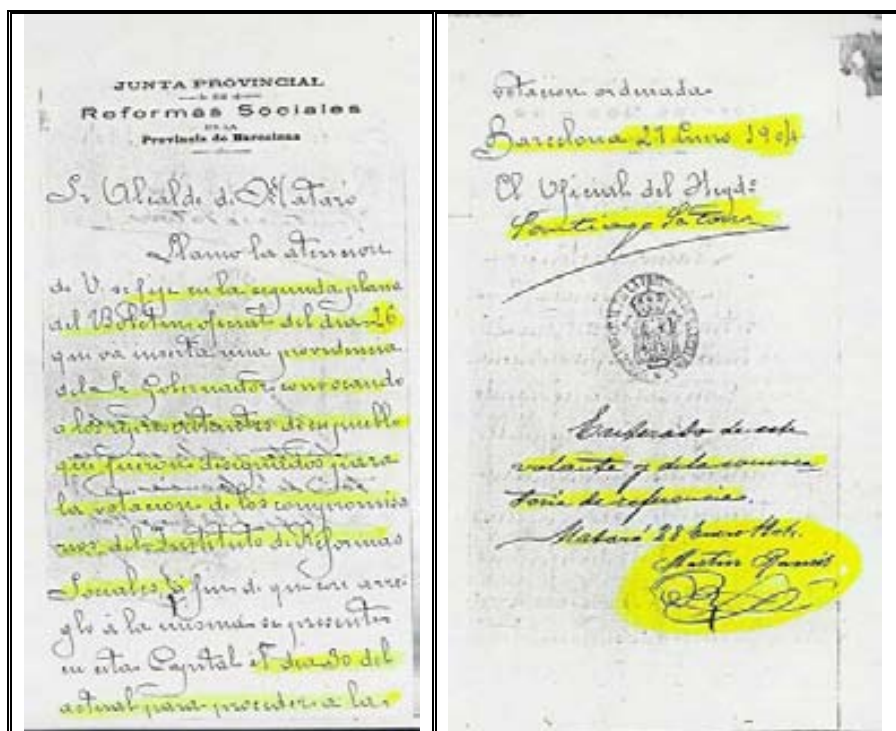 JUNTA PROVINCIAL
DE
Reformas Sociales
DE LA
Provincia de Barcelona
Sr Alcalde de Mataró
Llamo la atencion
de V. se fije en la segunda plana
del Boletin oficial del dia 26
que va inserta una providencia
del Sr. Gobernador convocando
a los representantes de su pueblo
que fueron designados para
la votacion de los compromisa
rios del Instituto de Reformas
Sociales á fin de que con arre
glo á la misma se presenten
en esta Capital el dia 30 del
actual para proceder a la
votacion ordenada
Barcelona 27 Enero 1904
El Oficial del Negdo
Santiago
Enterado de este
volante y de la convoca
toria de referencia.
Mataró 28 Enero 1904.
Martin